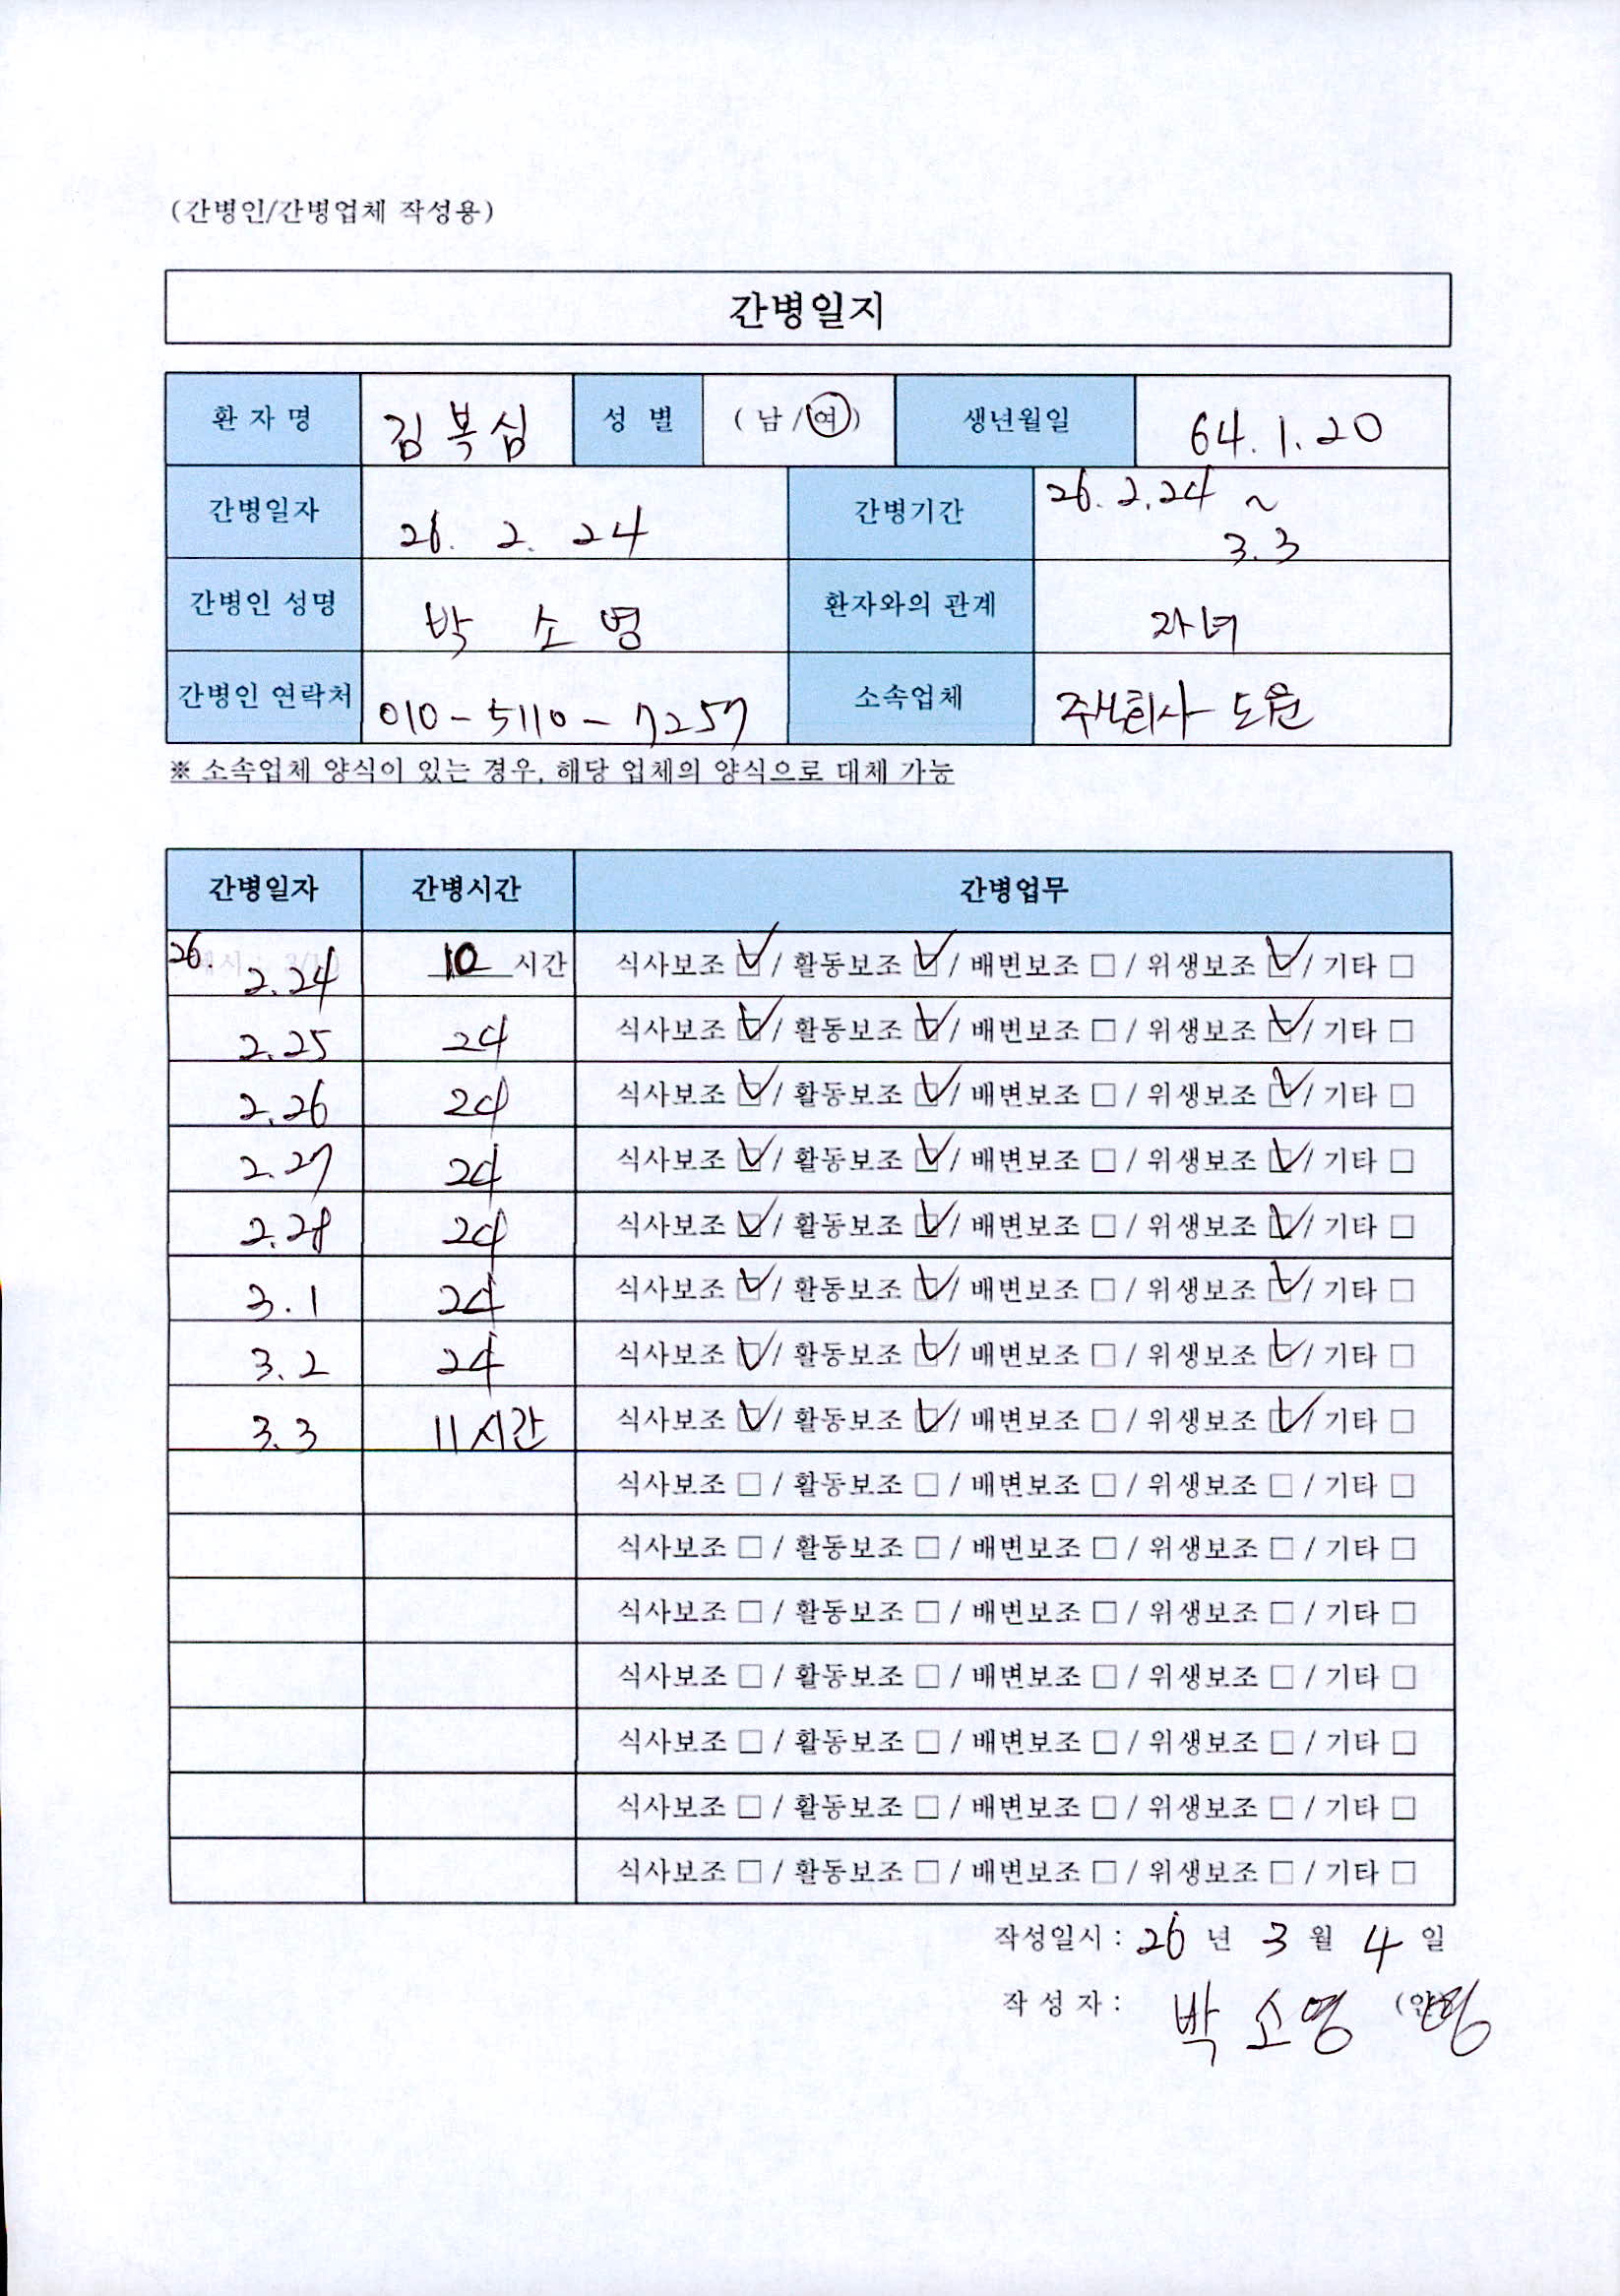 (간병인/간병업체 작성용)
간병일지
환 자 명 김복심 성 별 ( 남 / 여 ) 생년월일 64. 1. 20
간병일자 26. 2. 24 간병기간 26. 2. 24 ~
3. 3
간병인 성명 박 소 영 환자와의 관계 자녀
간병인 연락처 010-5110-7257 소속업체 도운
※ 소속업체 양식이 있는 경우, 해당 업체의 양식으로 대체 가능
간병일자 간병시간 간병업무
26. 2.24 10 시간 식사보조 ☑ / 활동보조 ☑ / 배변보조 □ / 위생보조 ☑ / 기타 □
2.25 24 식사보조 ☑ / 활동보조 ☑ / 배변보조 □ / 위생보조 ☑ / 기타 □
2.26 24 식사보조 ☑ / 활동보조 ☑ / 배변보조 □ / 위생보조 ☑ / 기타 □
2.27 24 식사보조 ☑ / 활동보조 ☑ / 배변보조 □ / 위생보조 ☑ / 기타 □
2.28 24 식사보조 ☑ / 활동보조 ☑ / 배변보조 □ / 위생보조 ☑ / 기타 □
3.1 24 식사보조 ☑ / 활동보조 ☑ / 배변보조 □ / 위생보조 ☑ / 기타 □
3.2 24 식사보조 ☑ / 활동보조 ☑ / 배변보조 □ / 위생보조 ☑ / 기타 □
3.3 11시간 식사보조 ☑ / 활동보조 ☑ / 배변보조 □ / 위생보조 ☑ / 기타 □
식사보조 □ / 활동보조 □ / 배변보조 □ / 위생보조 □ / 기타 □
식사보조 □ / 활동보조 □ / 배변보조 □ / 위생보조 □ / 기타 □
식사보조 □ / 활동보조 □ / 배변보조 □ / 위생보조 □ / 기타 □
식사보조 □ / 활동보조 □ / 배변보조 □ / 위생보조 □ / 기타 □
식사보조 □ / 활동보조 □ / 배변보조 □ / 위생보조 □ / 기타 □
식사보조 □ / 활동보조 □ / 배변보조 □ / 위생보조 □ / 기타 □
식사보조 □ / 활동보조 □ / 배변보조 □ / 위생보조 □ / 기타 □
작성일시 : 26 년 3 월 4 일
작 성 자 : 박 소영